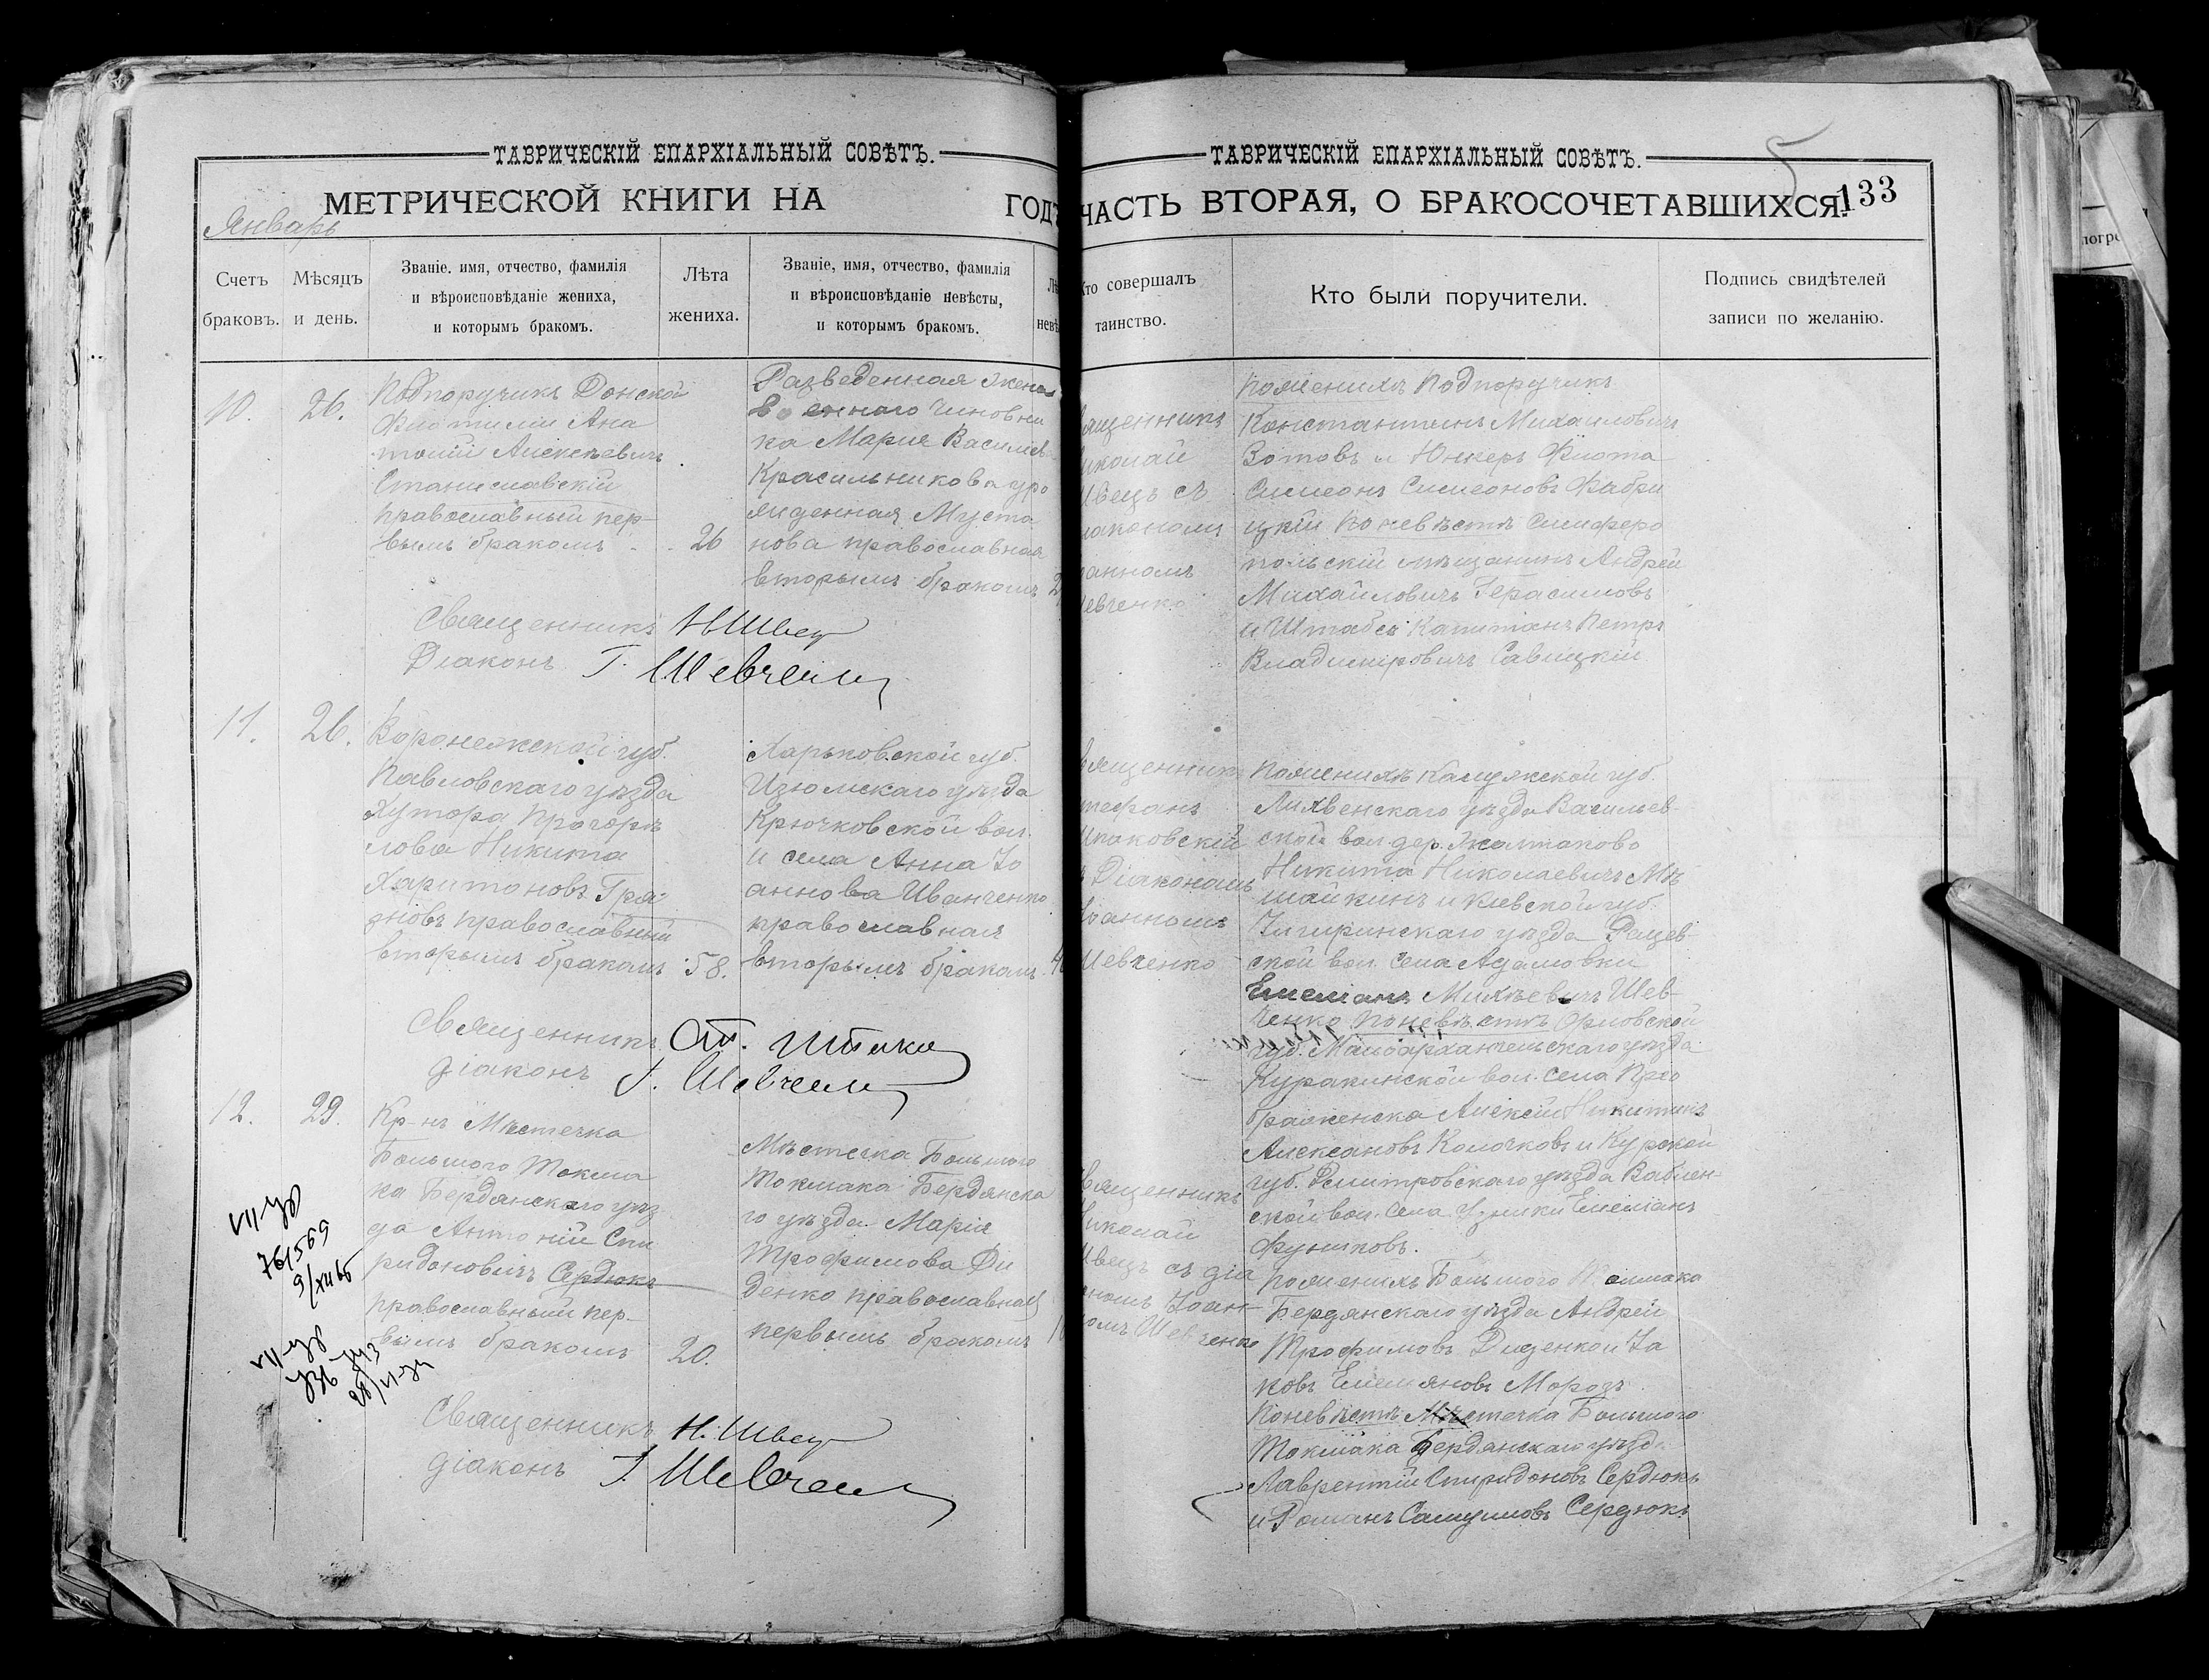 ТАВРИЧЕСКІЙ ЕПАРХІАЛЬНЫЙ СОВѢТЪ.
МЕТРИЧЕСКОЙ КНИГИ НА ГОДЪ
Январь
Счетъ браковъ.
Мѣсяцъ и день.
Званіе. имя, отчество, фамилія
и вѣроисповѣданіе жениха,
и которымъ бракомъ.
Лѣта
жениха.
Званіе, имя, отчество, фамилія
и вѣроисповѣданіе невѣсты,
и которымъ бракомъ.
10.
26.
Подпоручикъ Донской
Флотиліи Ана
толій Алексѣевичъ
Станиславскій
православный пер-
вымъ бракомъ
26
Разведенная жена
военнаго чиновни
ка Марія Василіева
Красильникова уро
жденная Муста
нова православная
вторымъ бракомъ
Священникъ Н Швец
Діаконъ І. Шевченко
11.
26.
Воронежской губ.
Павловскаго уѣзда
хутора Прогорѣ
лова Никита
Харитоновъ Гря-
зновъ православный
вторымъ бракомъ
58.
Харьковской губ.
Изюмскаго уѣзда
Крючковской вол.
и села Анна Іо
аннова Иванченко
православная
вторымъ бракомъ
Священникъ Ст.
діаконъ І. Шевченко
12.
29.
Кр-нъ Мѣстечка
Большого Токма
ка Бердянскаго уѣз
да Антоній Спи
ридоновичъ Сердюкъ
православный пер-
вымъ бракомъ
20.
Мѣстечка Большого
Токмака Бердянска
го уѣзда Марія
Трофимова Ди
денко православная
первымъ бракомъ
Священникъ Н. Швец
діаконъ І. Шевченко
ТАВРИЧЕСКІЙ ЕПАРХІАЛЬНЫЙ СОВѢТЪ.
5
ЧАСТЬ ВТОРАЯ, О БРАКОСОЧЕТАВШИХСЯ.
133
Кто совершалъ
таинство.
Кто были поручители.
Подпись свидѣтелей
записи по желанію.
ященникъ
иколай
Швецъ съ
іакономъ
оанномъ
Шевченко
По женихѣ Подпоручикъ
Константинъ Михаиловичъ
Зотовъ и Юнкеръ Флота
Симеонъ Симеоновъ Фабри
цкій По невѣстѣ Симферо
польскій мѣщанинъ Андрей
Михайловичъ Герасимовъ
и Штабсъ Капитанъ Петръ
Владиміровичъ Савицкій
вященникъ
тефанъ
Шпаковскій
Діакономъ
Іоанномъ
Шевченко
По женихѣ Калужской губ.
Лихвенскаго уѣзда Васильев-
ской вол. дер. Желтаково
Никита Николаевичъ Мѣ
шайкинъ и Кіевской губ.
Чигиринскаго уѣзда Рацев-
ской вол. села Адамовки
Емеліанъ Михѣевичъ Шев-
ченко По невѣстѣ Орловской
губ. Малоархангельскаго уѣзда
Куракинской вол. села Прео
браженска Алексій Никитинъ
Алексановъ Колочковъ и Курской
губ. Дмитровскаго уѣзда
ской вол. села Емеліанъ
вященникъ
Николай
Швецъ съ діа
кономъ Іоан-
номъ Шевченко
По женихѣ Большого Токмака
Бердянскаго уѣзда Андрей
Трофимовъ Диденко и Іа
ковъ Емельяновъ Морозъ
По невѣстѣ Мѣстечка Большого
Токмака Бердянскаго уѣзда
Лаврентій Спиридоновъ Сердюкъ
и Романъ Самуиловъ Сердюкъ